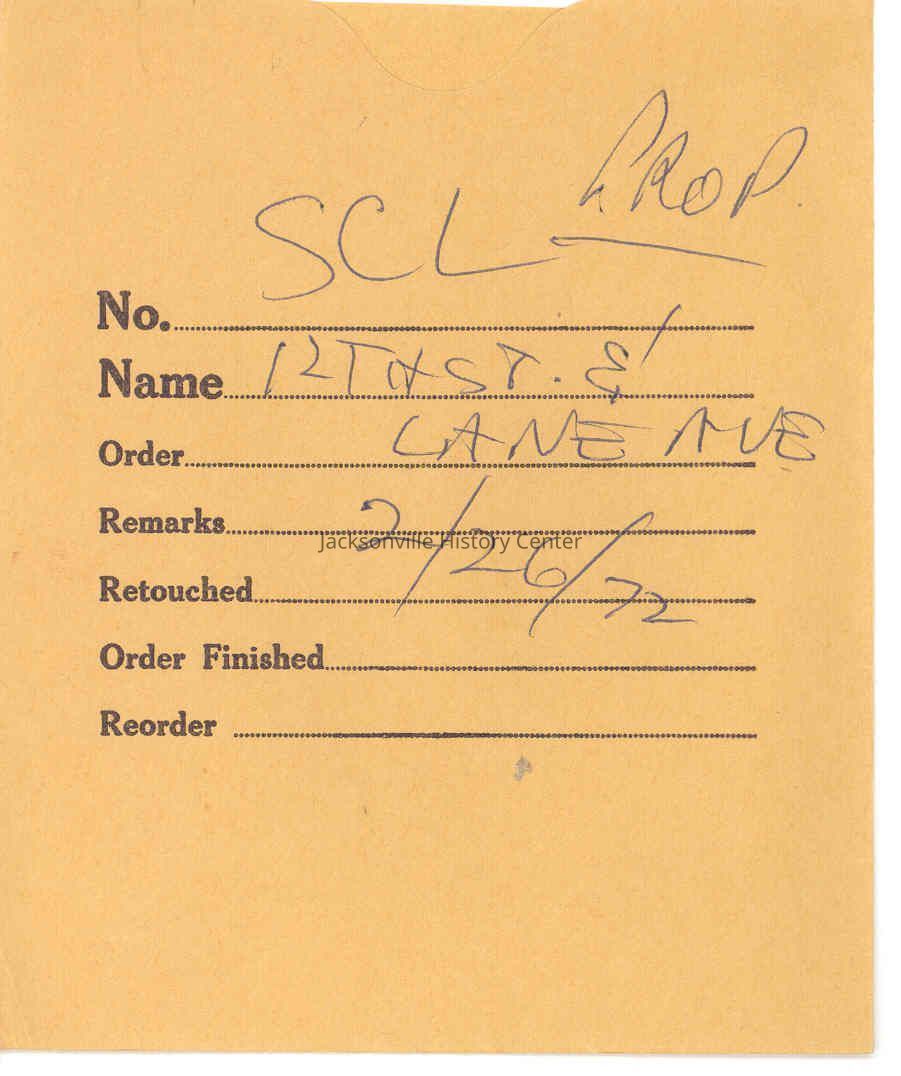 SCL PROP.
No.
Name 12TH ST. &
Order LANE AVE
Remarks 2/26/72
Jacksonville History Center
Retouched
Order Finished
Reorder